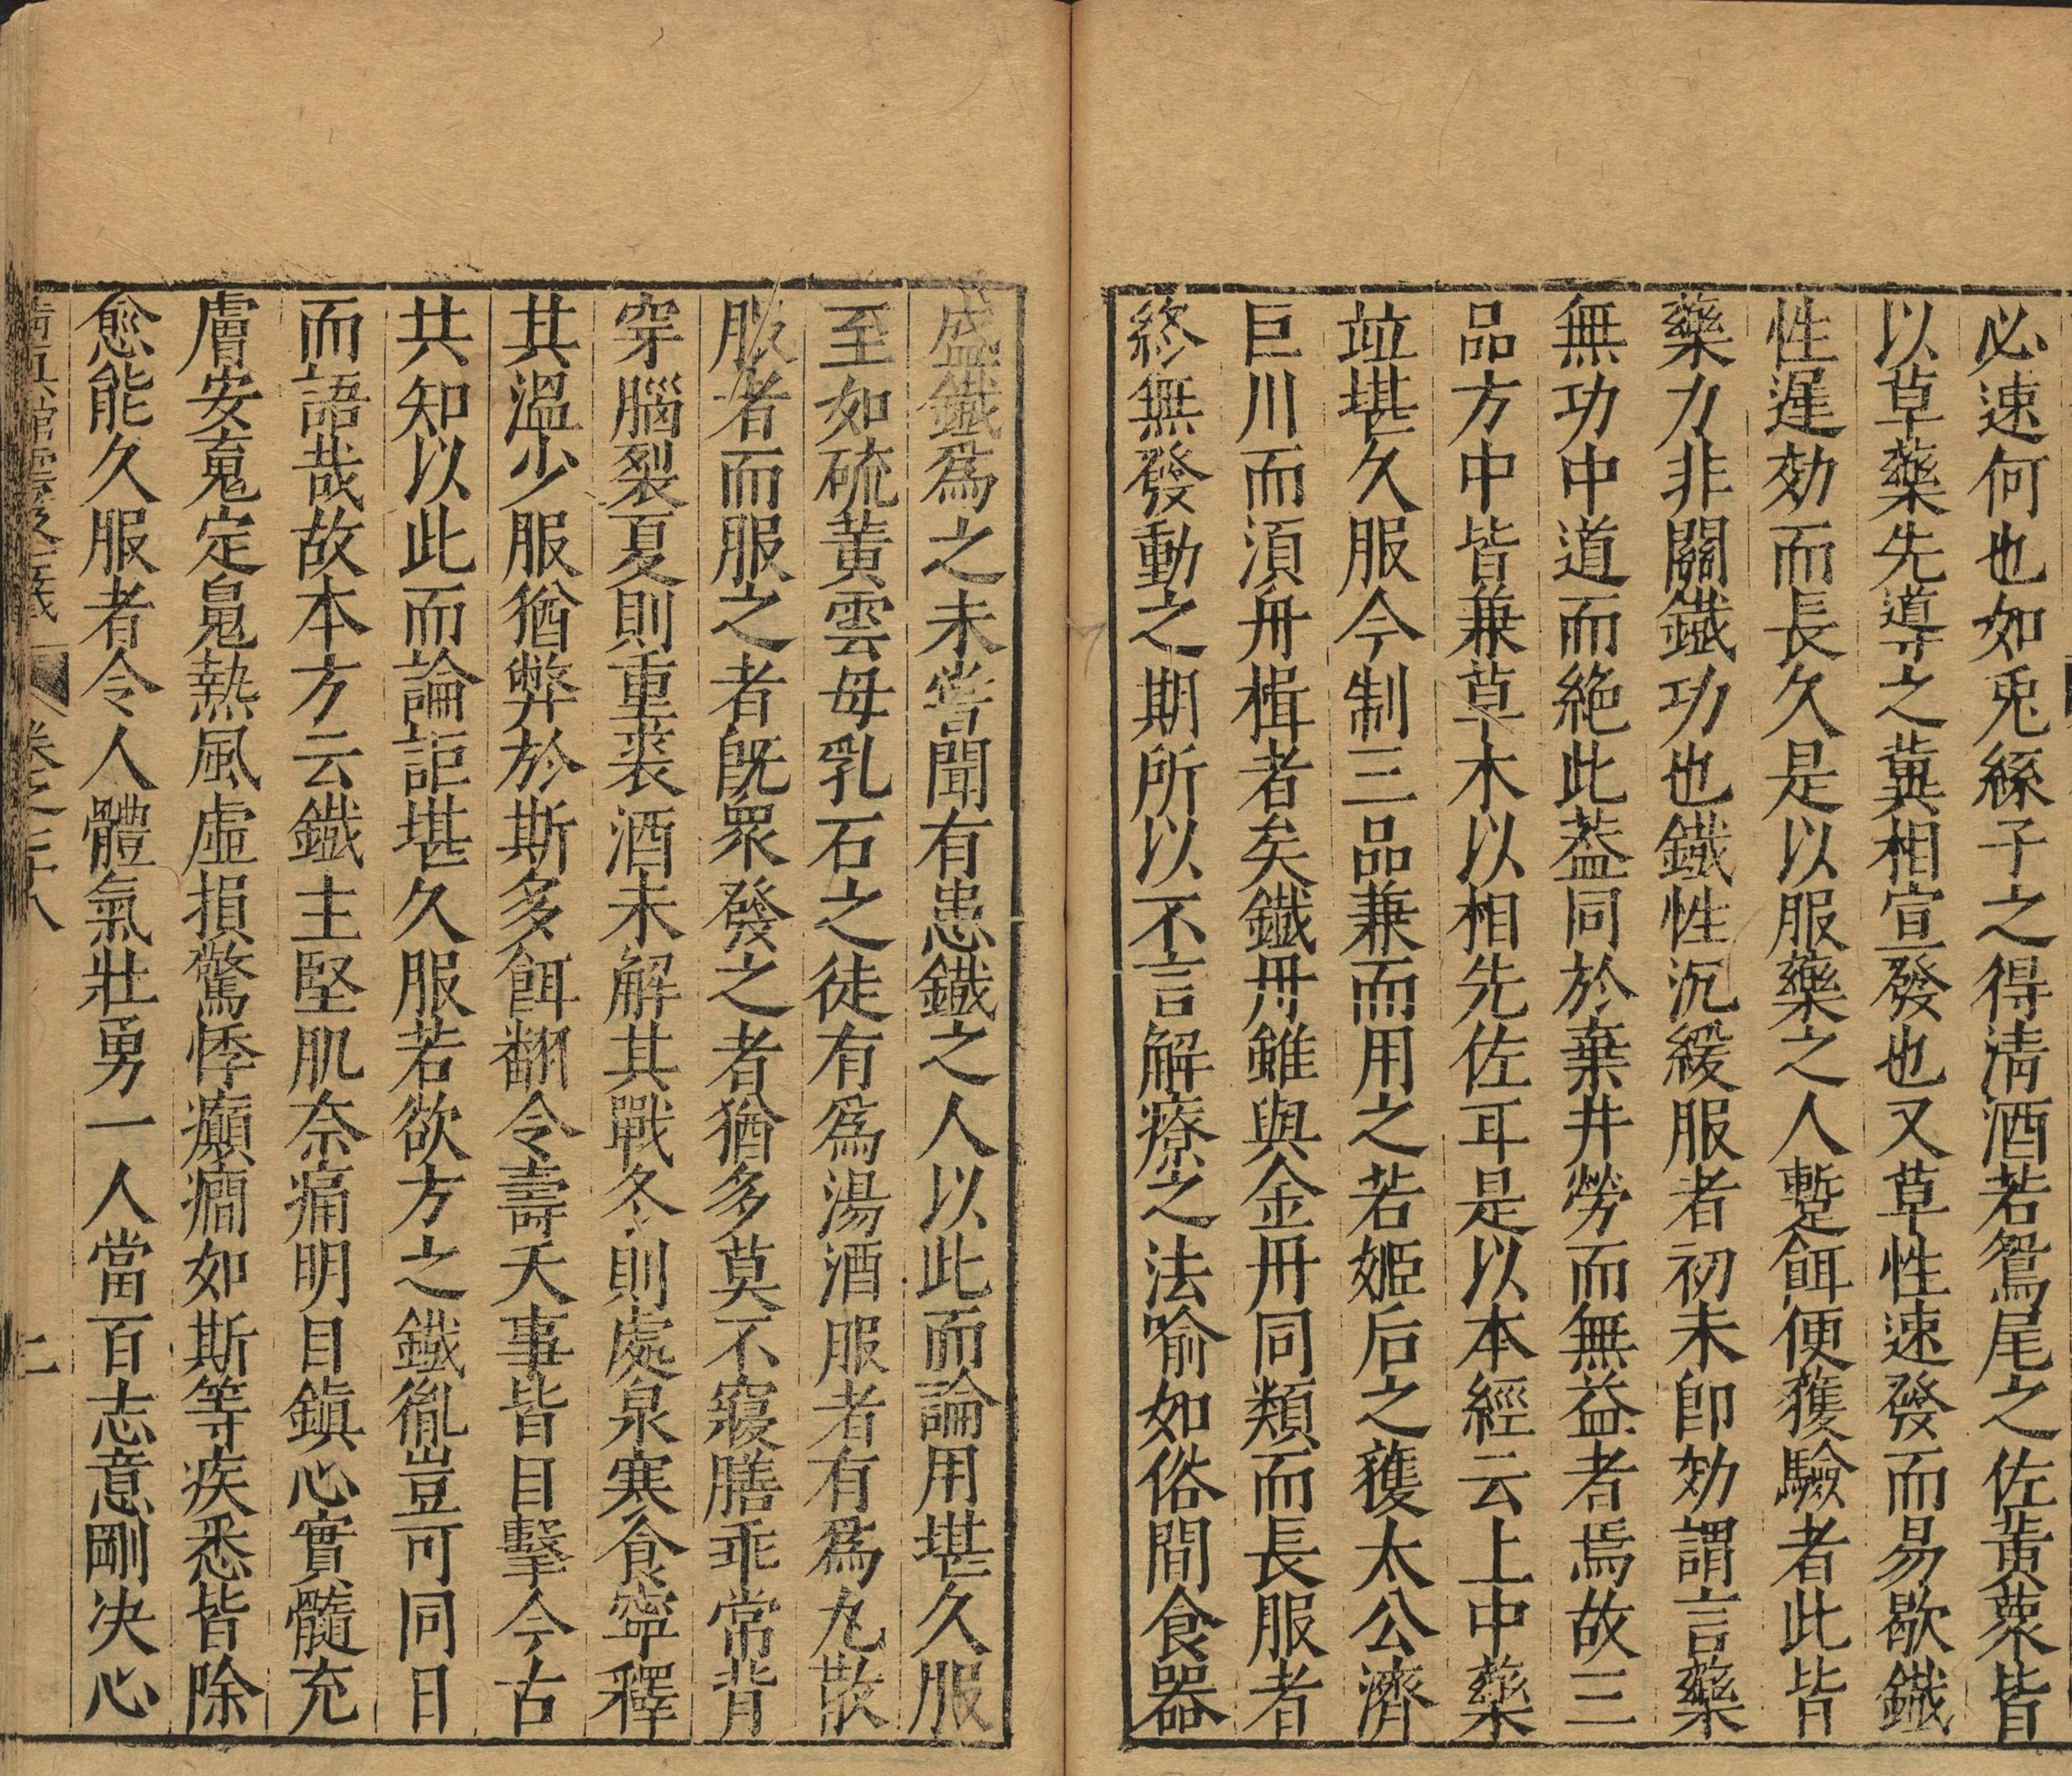 必速何也如兎絲子之得淸酒若鴛尾之佐黃蘗皆
以草藥先導之冀相宣發也又草性速發而易歇鐵
性遲効而長久是以服藥之人蹔餌便獲驗者此皆
藥力非關鐵功也鐵性沉緩服者初未即効謂言藥
無功中道而絶此葢同於棄井勞而無益者焉故三
品方中皆兼草木以相先佐耳是以本經云上中藥
竝堪久服今制三品兼而用之若姬后之獲太公濟
巨川而湏舟楫者矣鐵丹雖與金丹同類而長服者
終無發動之期所以不言解療之法喻如俗間食器
盛鐵爲之未嘗聞有患鐵之人以此而論用堪久服
至如硫黃雲母乳石之徒有爲湯酒服者有爲丸散
服者而服之者旣衆發之者猶多莫不寢膳乖常背
穿腦裂夏則重裘酒未解其戰冬則處泉寒食寧釋
其溫少服猶弊於斯多餌翻令壽夭事皆目擊今古
共知以此而論詎堪久服若欲方之鐵胤豈可同日
而語哉故本方云鐵主堅肌奈痛明目鎭心實髓充
膚安䰟定𩲸熱風虛損驚悸癲癇如斯等疾悉皆除
愈能久服者令人體氣壯勇一人當百志意剛决心
卷之二十八 二